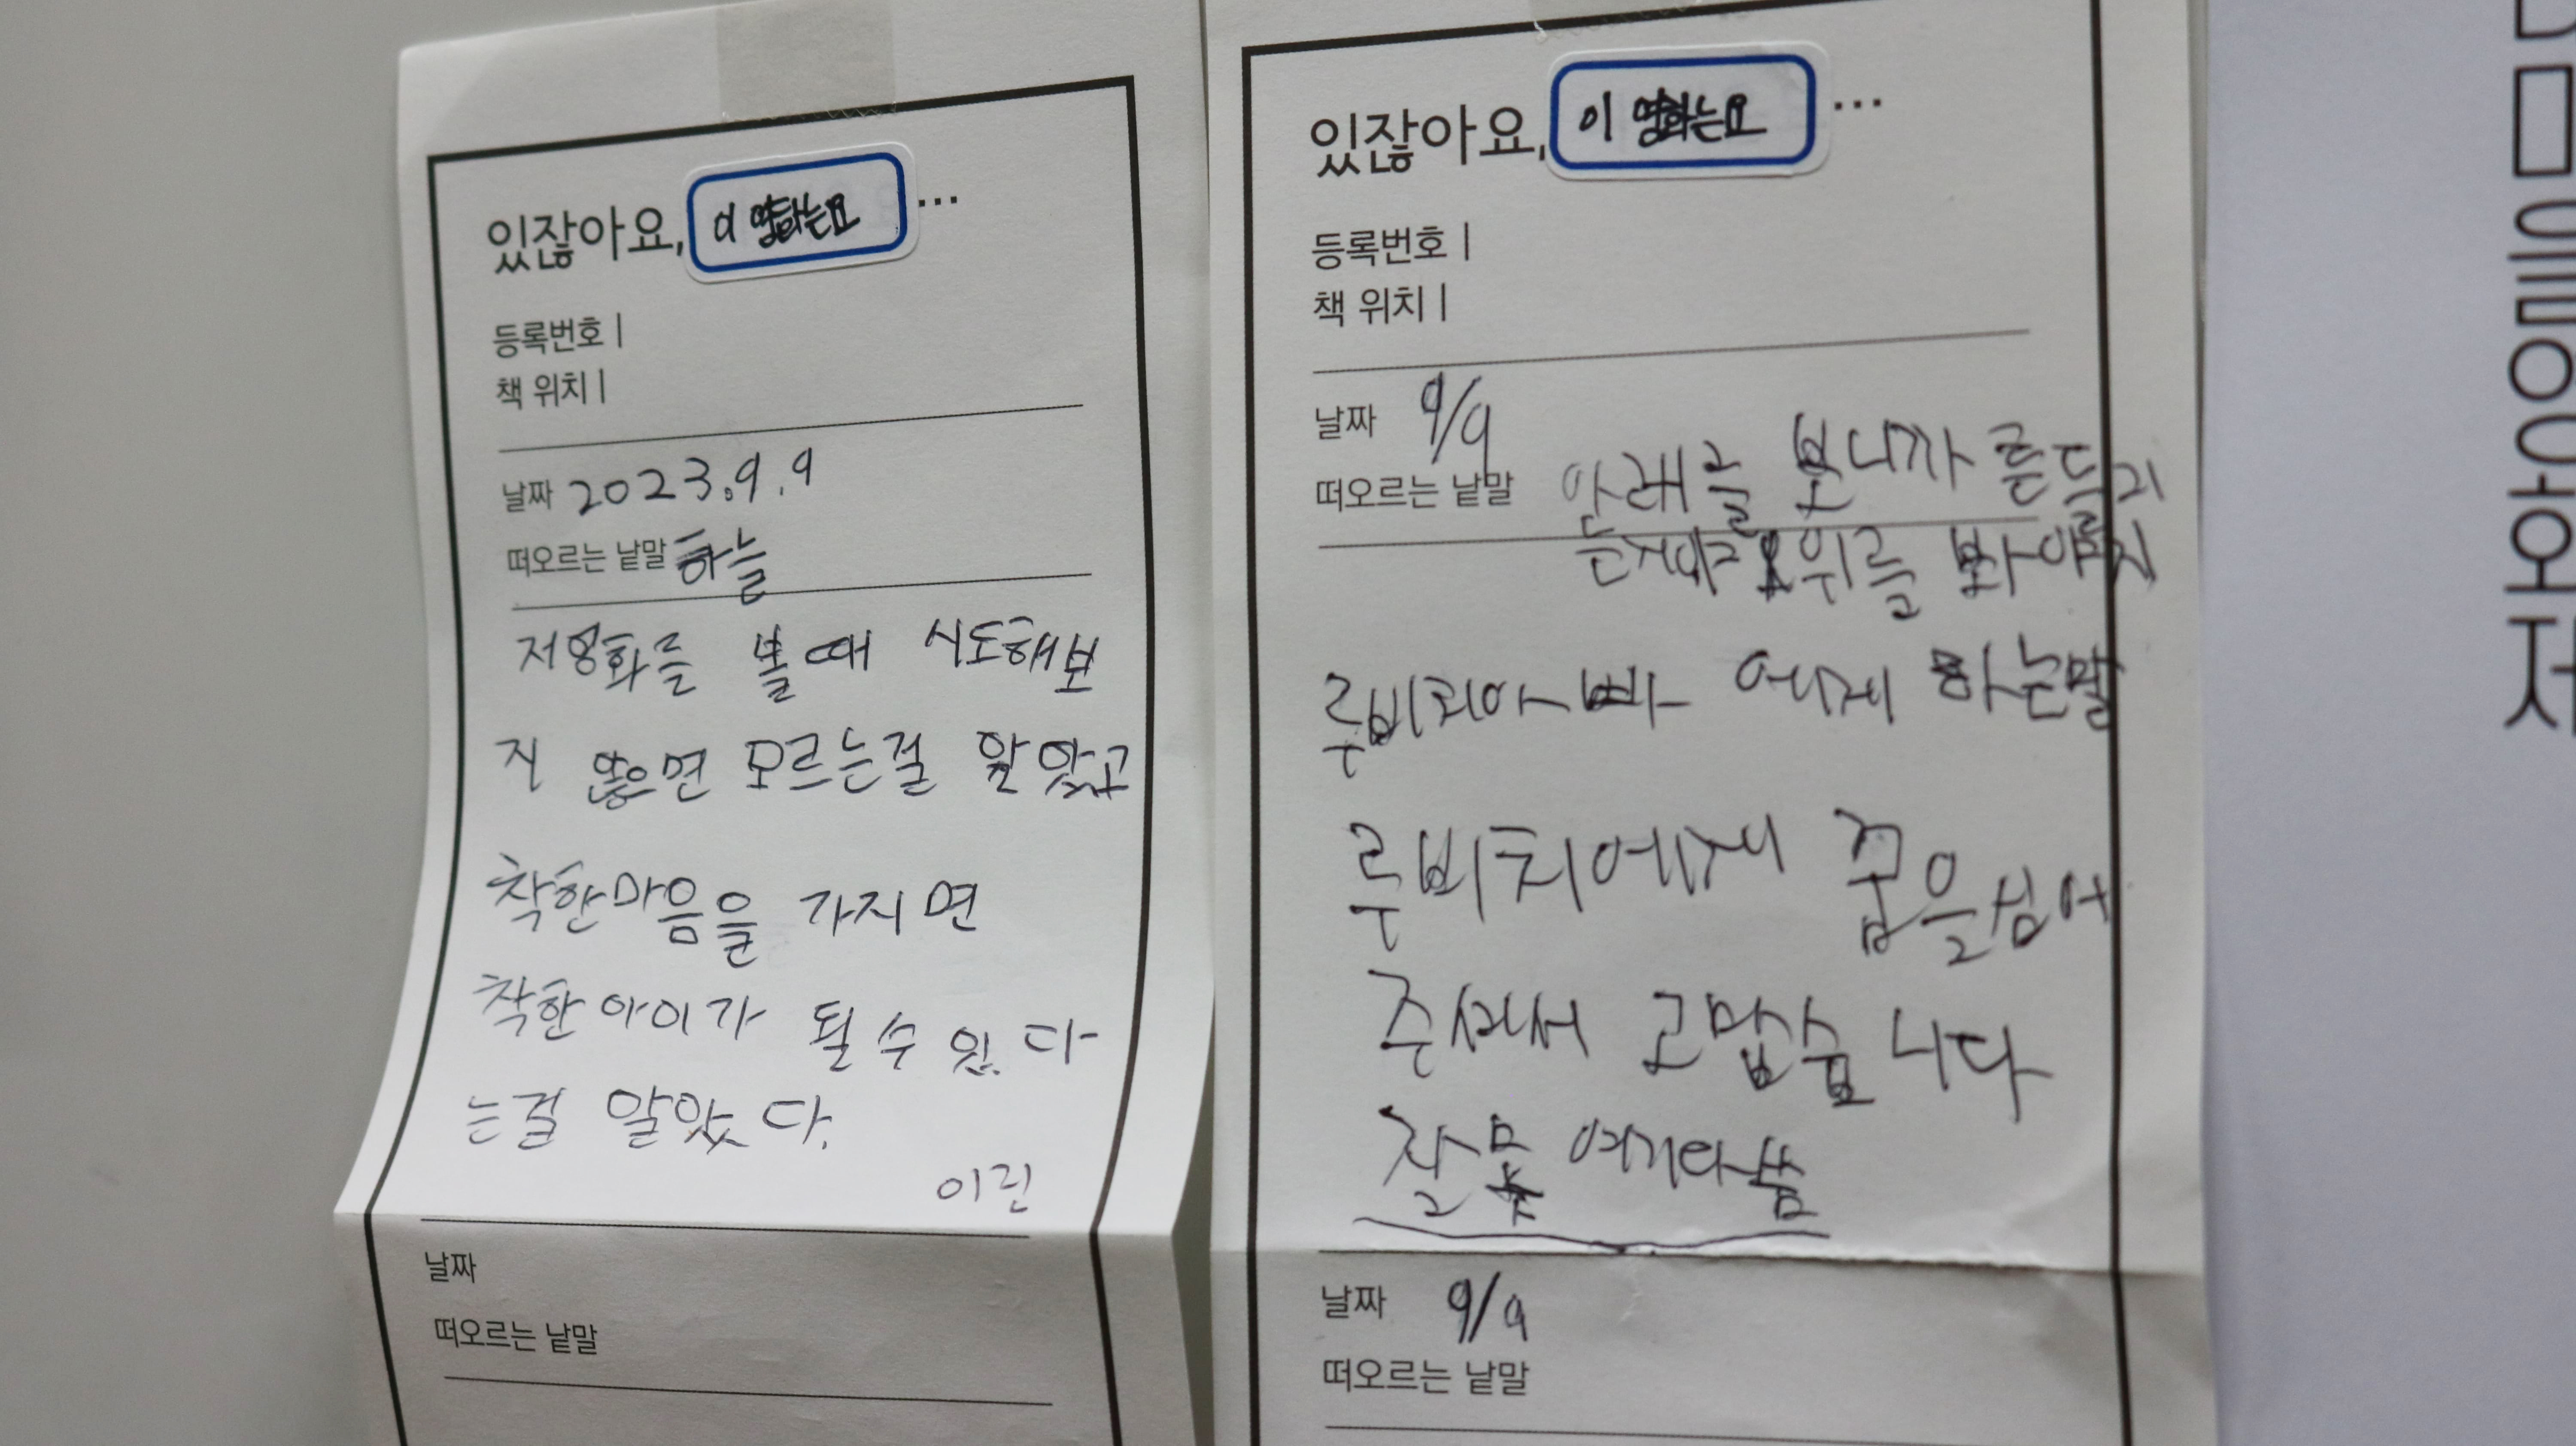 있잖아요, 이 영화는요 ...
등록번호 |
책 위치 |
날짜 2023.9.9
떠오르는 낱말 하늘
저영화를 볼때 시도해보
지 않으면 모르는걸 알았고
착한마음을 가지면
착한아이가 될수있다
는걸 알았다.
이린
날짜
떠오르는 낱말
있잖아요, 이 영화는요 ...
등록번호 |
책 위치 |
날짜 9/9
떠오르는 낱말 아래를 보니까
위를 봐야지
루비치아빠 에게 하는말
루비치에게 꿈을심어
주셔서 고맙습니다
잘못 여기다씀
날짜 9/9
떠오르는 낱말